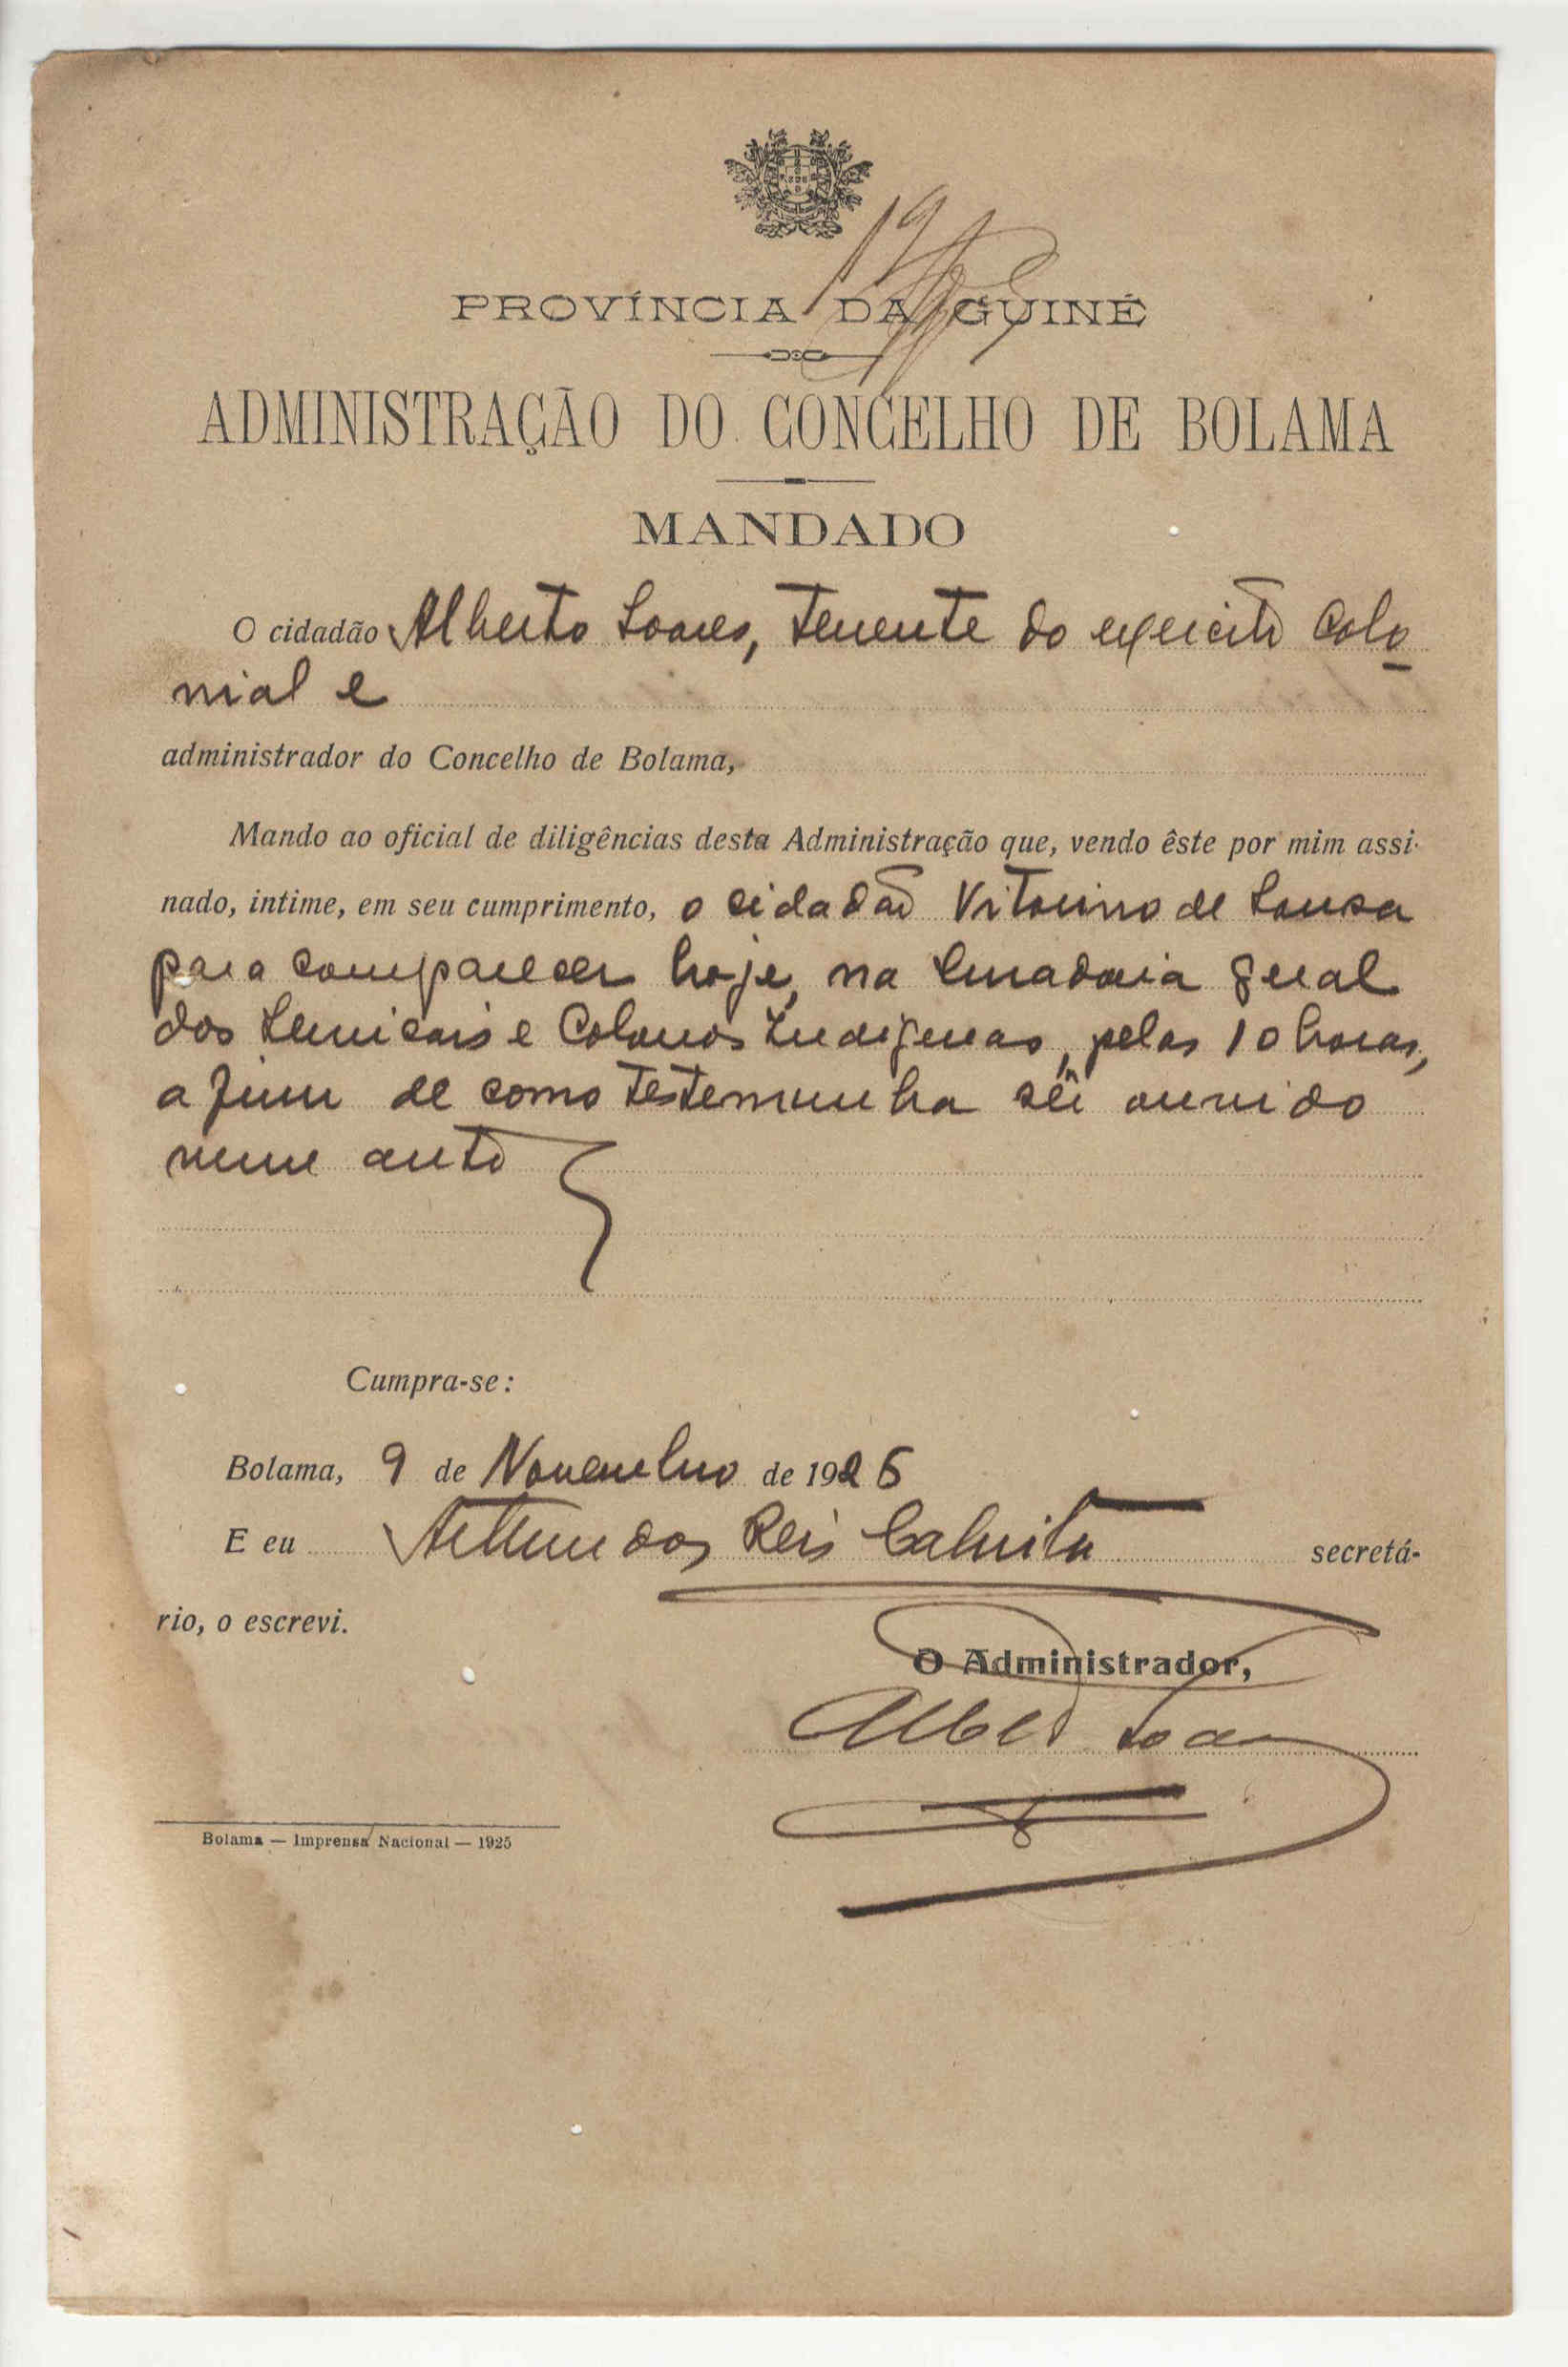 19
PROVÍNCIA DA GUINÉ
ADMINISTRAÇÃO DO CONCELHO DE BOLAMA
MANDADO
O cidadão Alberto Soares, Tenente do exercito Colo
nial e
administrador do Concelho de Bolama,
Mando ao oficial de diligências desta Administração que, vendo êste por mim assi-
nado, intime, em seu cumprimento, o cidadão Vitorino de Sousa
para comparecer hoje, na Curadoria geral
dos Serviçais e Colonos Indigenas, pelas 10 horas,
a fim de como testemunha sêr ouvido
num auto
Cumpra-se:
Bolama, 9 de Novembro de 1926
E eu dos Reis secretá-
rio, o escrevi.
O Administrador,
Alberto Soares
Bolama — Imprensa Nacional — 1925